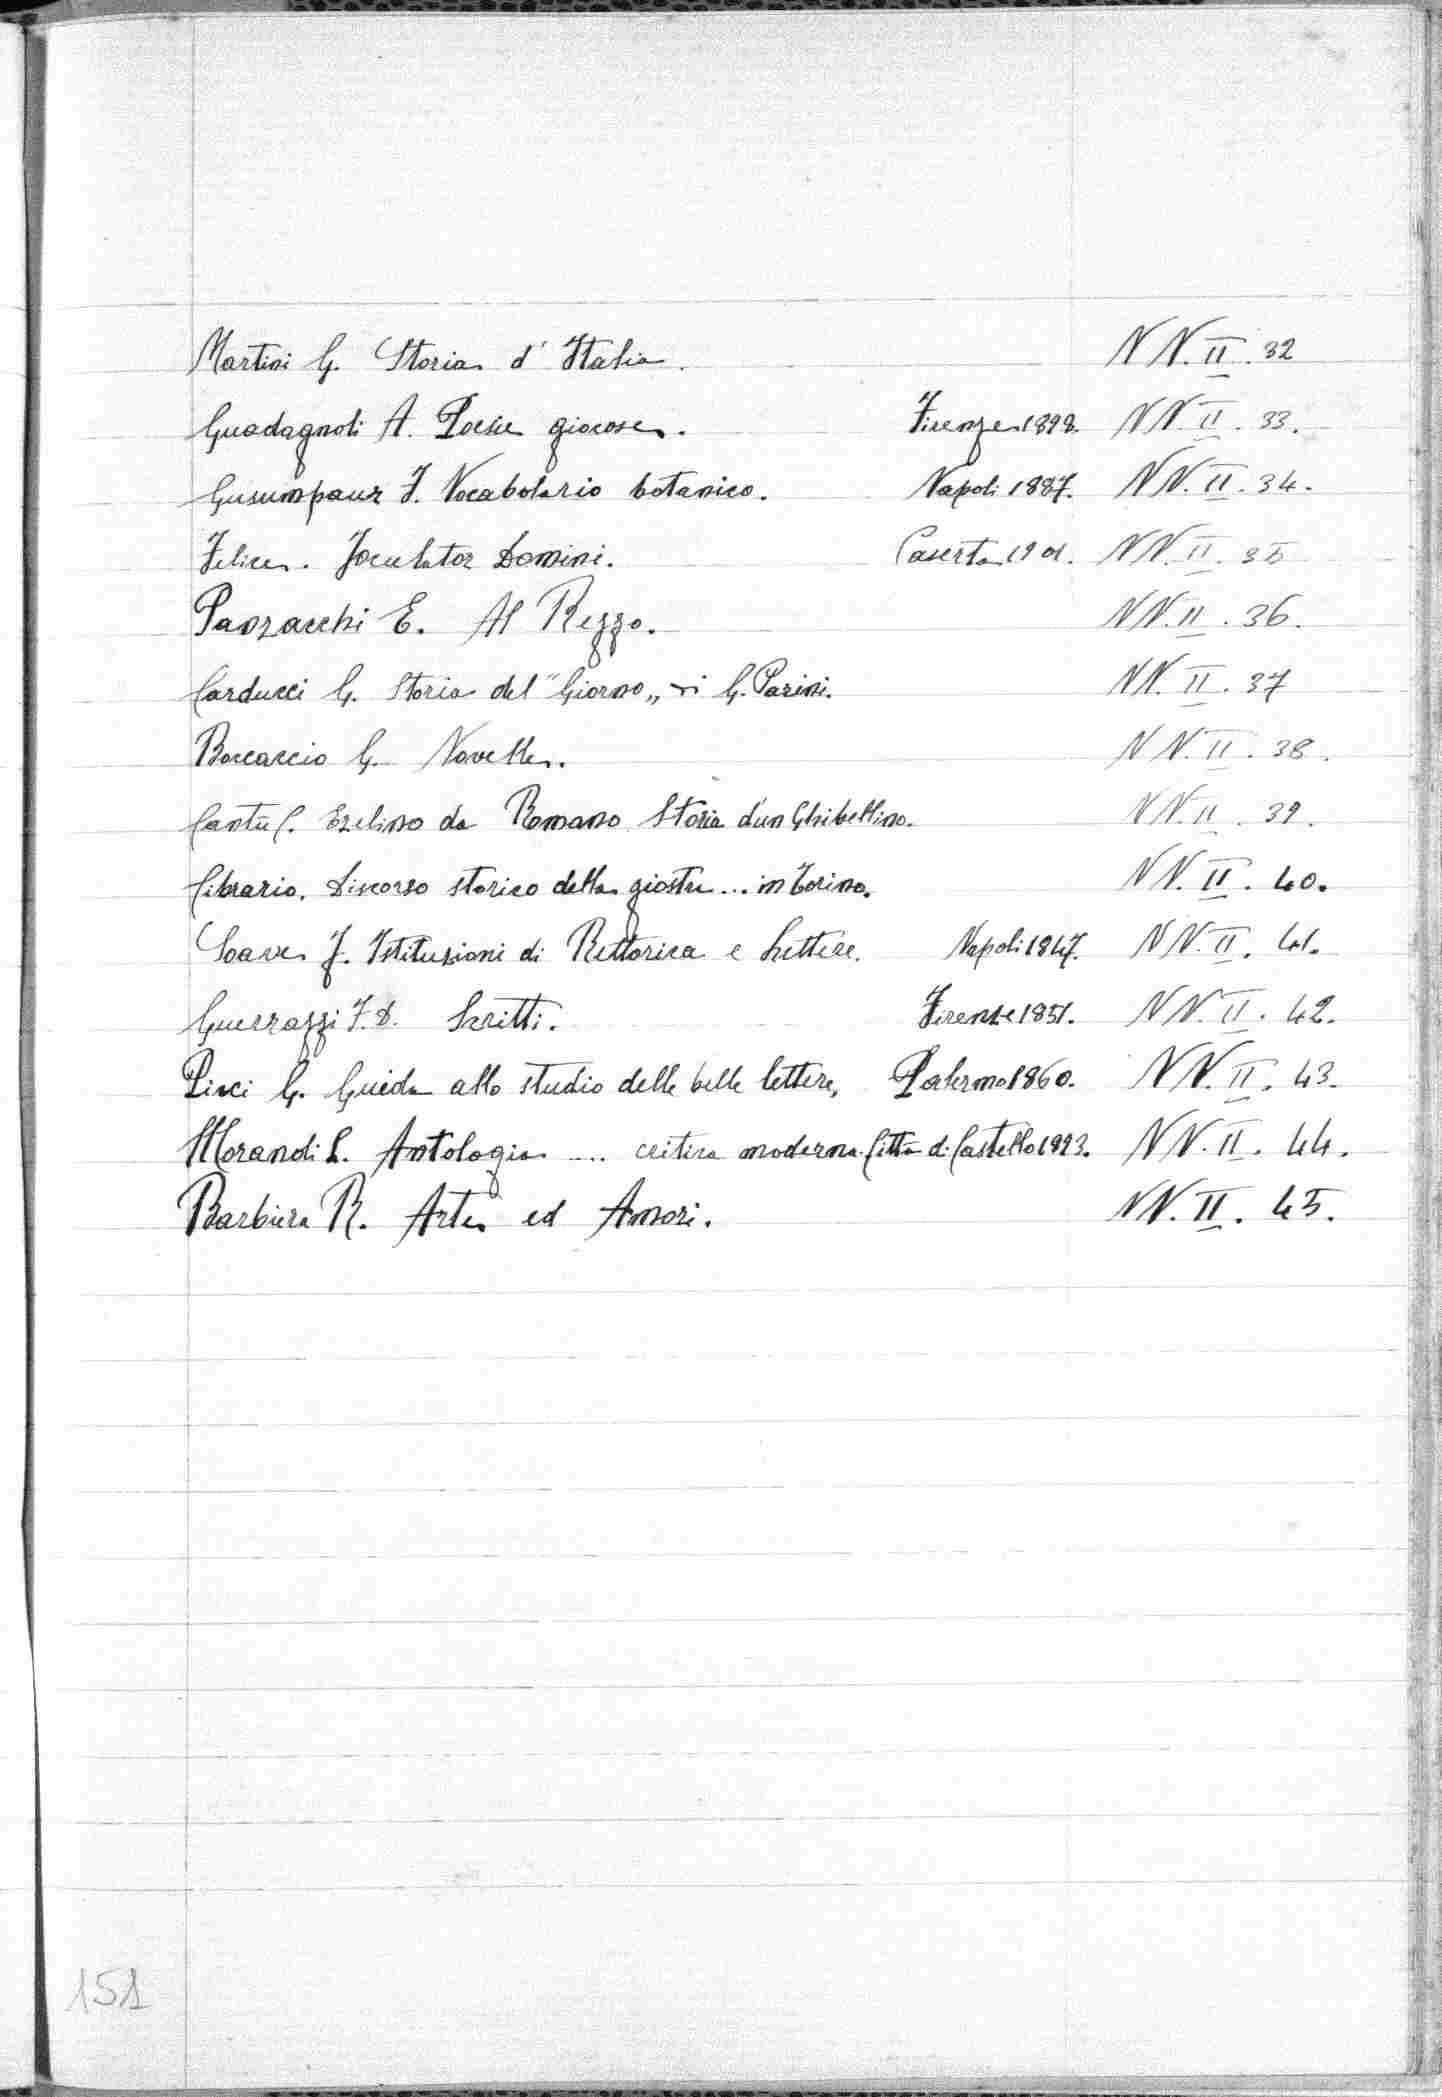 Martini G. Storia d'Italia. NN. II. 32
Guadagnoli A. Poesie giocose. Firenze 1898. NN. II. 33.
Gusumpaur F. Vocabolario botanico. Napoli 1887. NN. II. 34.
Felice. Joculator Domini. Caserta 1901. NN. II. 35
Panzacchi E. Al Rezzo. NN. II. 36.
Carducci G. Storia del "Giorno„ di G. Parini. NN. II. 37
Boccaccio G. Novelle. NN. II. 38.
Cantù C. Ezelino da Romano Storia d'un Ghibellino. NN. II. 39.
Cibrario. Discorso storico della giostre... in Torino. NN. II. 40.
Soave F. Istituzioni di Rettorica e Lettere. Napoli 1847. NN. II. 41.
Guerrazzi F. D. Scritti. Firenze 1851. NN. II. 42.
Pinci G. Guida allo studio delle belle lettere, Palermo 1860. NN. II. 43.
Morandi L. Antologia .... critica moderna. Città di Castello 1893. NN. II. 44.
Barbiera R. Arte ed Amori. NN. II. 45.
151